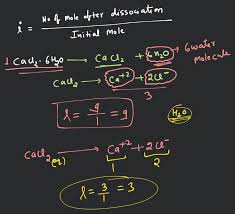 i = No of mole after dissociation / Initial mole
1 CaCl₂·6H₂O → CaCl₂ + 6H₂O → 6 water molecule
CaCl₂ → Ca⁺² + 2Cl⁻
3
i = 9/1 = 9
H₂O
CaCl₂ → Ca⁺² + 2Cl⁻
1 2
i = 3/1 = 3